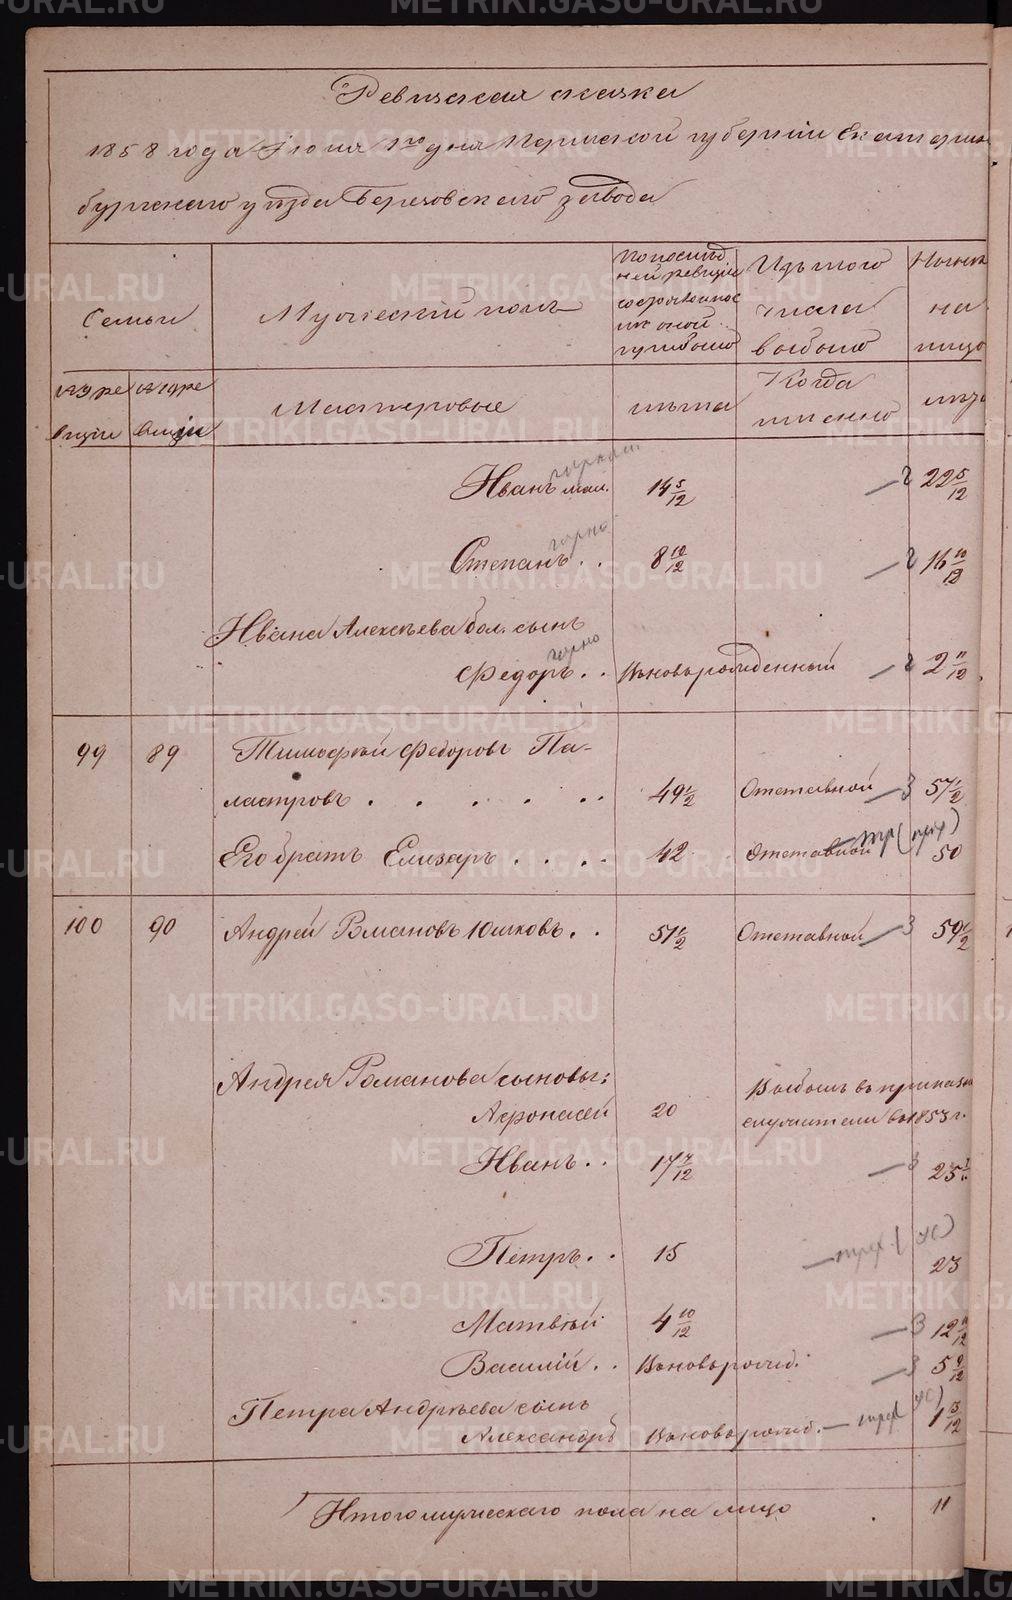 Ревизская сказка
1858 года Июня 1го дня Пермской губернии Екатерин
бургского уѣзда Березовского завода
Семьи
Мужескій полъ
По послѣд
ней ревизіи
состояло и пос
лѣ оной
прибыло
Изъ того
числа
выбыло
Нынѣ
на
лицо
№ по ре
визіи
№ по ре
визіи
Мастеровые
лѣта
Когда
именно
лѣта
Иванъ мал. 14 5/12 22 5/12
Степанъ . . 8 10/12 16 10/12
Ивана Алексѣева бол. сынъ
Федоръ . . Вновьрожденный 2 11/12
99 89 Тимофѣй Федоровъ Па-
ластровъ . . . . . . . 49 1/2 Отставной 3 57 1/2
Его братъ Елизаръ . . . . 42 Отставной 50
100 90 Андрей Романовъ Юшковъ . . 51 1/2 Отставной 3 59 1/2
Андрея Романова сыновья:
Афонасей 20 Выбылъ въ приказн
служители въ 1853 г.
Иванъ . . 17 7/12 3 25 7/12
Петръ . . 15 23
Матвѣй 4 10/12 3 12 10/12
Василій . . Вновьрожд. 3 5 9/12
Петра Андрѣева сынъ
Александръ Вновьрожд. 1 3/12
Итого мужескаго пола на лицо 11
METRIKI.GASO-URAL.RU